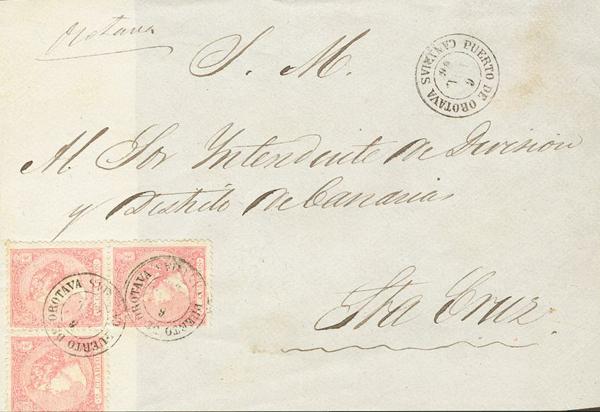 Orotava
S. M.
PUERTO DE OROTAVA CANARIAS
Al Sor Intendente de Division
y Distrito de Canarias
Sta Cruz
PUERTO DE OROTAVA
PUERTO DE OROTAVA